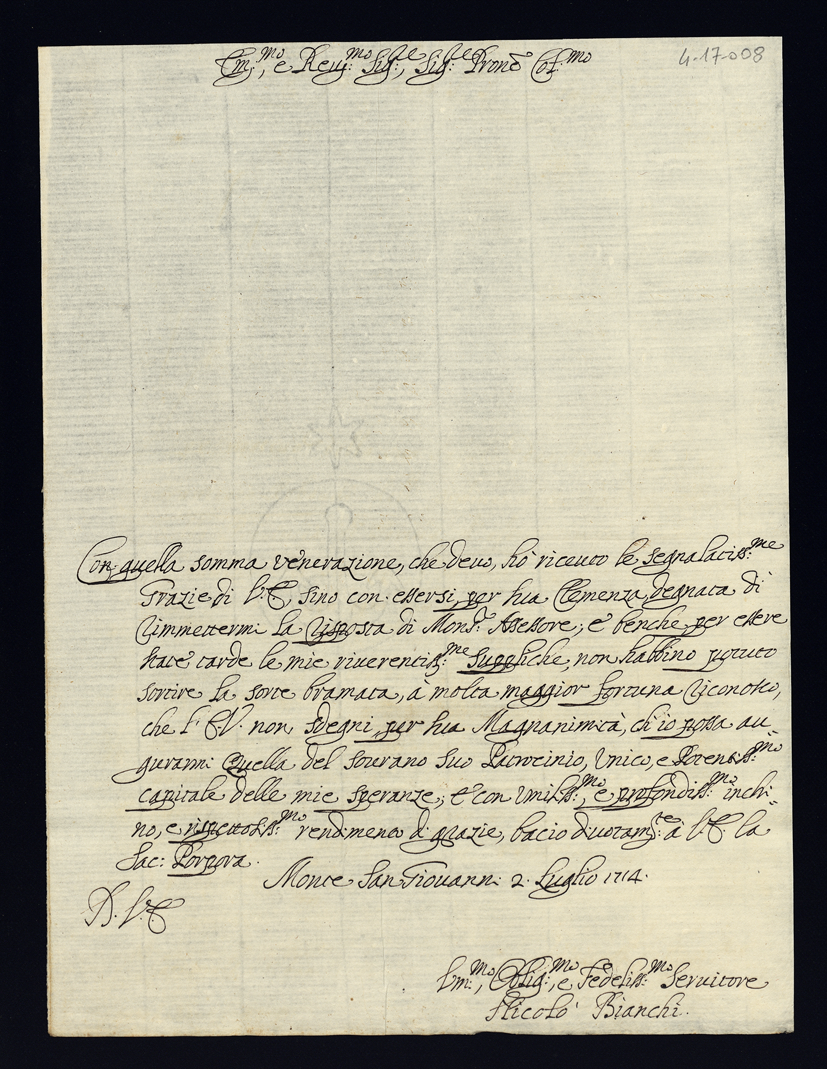 Em:mo, e Reu:mo Sig:re, Sig:re Pronē Col:mo
4-17-008
Con quella somma venerazione, che devo, hò riceuto le segnalatiss:me
Grazie di V:E, sino con essersi, per sua Clemenza, degnata di
rimettermi la risposta di Mons:r Assessore; e benche per essere
state tarde le mie riuerentiss:me suppliche, non habbino potuto
sortire la sorte bramata, à molta maggior fortuna riconosco,
che l'E.V. non sdegni, per sua Magnanimità, ch'io possa au-
gurarmi quella del sourano suo Patrocinio, vnico, e Potentiss:mo
capitale delle mie speranze; e con vmiliss:mo, e profondiss:mo inchi-
no, e rispettosiss:mo rendimento di grazie, bacio diuotam:te à V:E. la
Sac: Porpora.
Monte San Giouanni 2. Luglio 1714.
D. V:E
Vm:mo, Oblig:mo, e Fedeliss:mo Seruitore
Nicolò Bianchi.